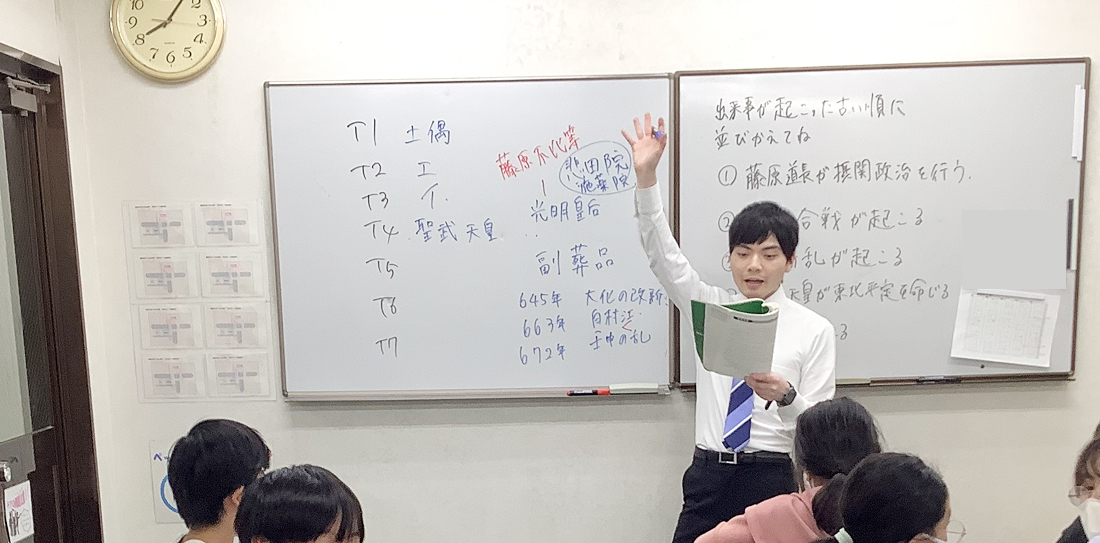 T1 土偶
T2 エ
T3 イ
T4 聖武天皇
T5
T6
T7
藤原不比等
悲田院
施薬院
光明皇后
副葬品
645年 大化の改新
663年 白村江
672年 壬申の乱
出来事が起こった古い順に
並びかえてね
① 藤原道長が摂関政治を行う.
合戦が起こる
乱が起こる
天皇が東北平定を命じる
る